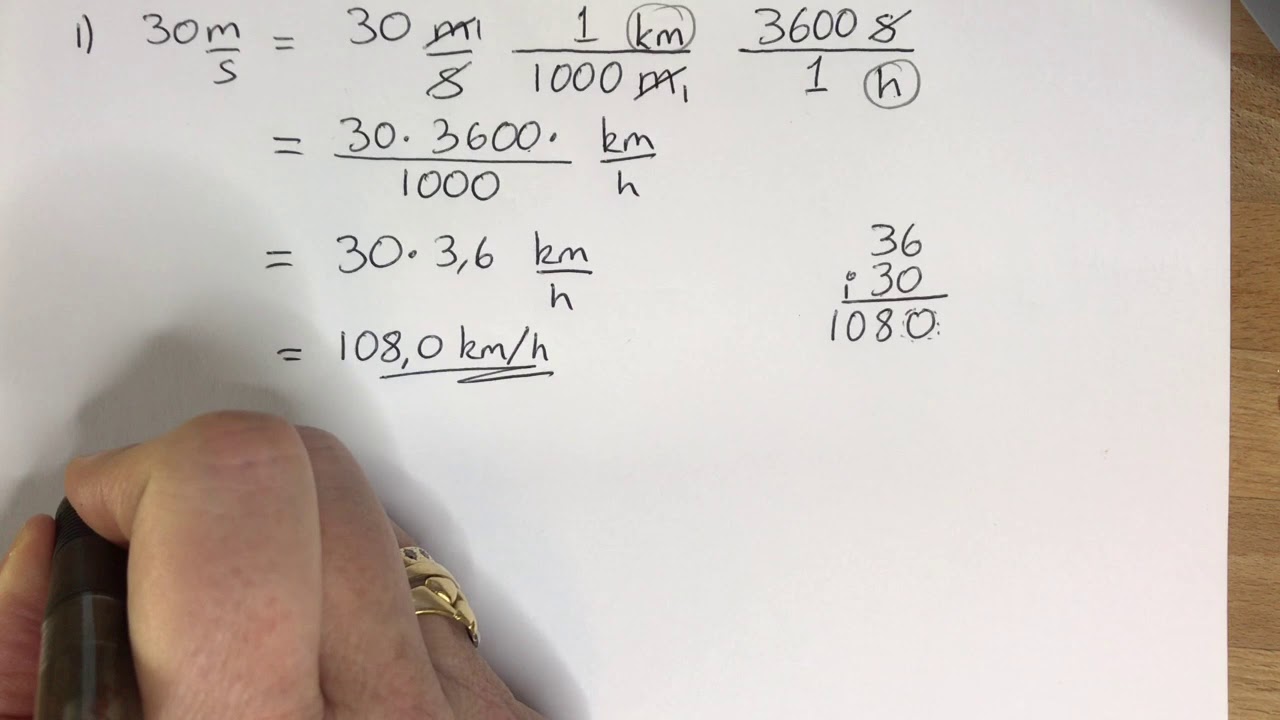 1) 30 m/s = 30 m/s 1 km/1000 m 3600 s/1 h
= 30 · 3600 ·/1000 km/h
= 30 · 3,6 km/h
= 108,0 km/h
36
· 30
1080